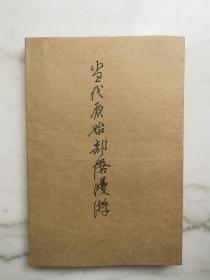 当代原始部落漫游